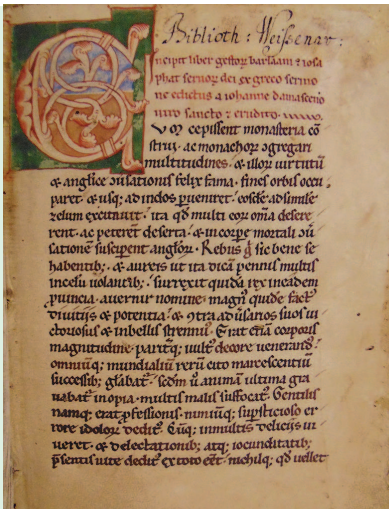 Biblioth: Weissenav:
Incipit liber gestoru barlaam & iosa
phat seruor dei ex greco sermo
ne editus a iohanne damasceno
uiro sancto & erudito
Cum cepissent monasteria co
strui ac monachor cgregari
multitudines & illor uirtutu
& anglice cuersationis felix fama fines orbis occu
paret & usq; ad indos pueniret eosde ad simile
zelum excitauit ita qd multi eor omia desere
rent ac peterent deserta & in corpe mortali cuer
satione susciperent anglor Rebus g sic bene se
habentib; & aureis ut ita dica pennis multis
incelu uolantib; surrexit quida rex in eadem
puincia auennir nomine magn quide fact
diuitijs & potentia & contra aduersarios suos ui
ctoriosus & in bellis strennu Erat etia corporis
magnitudine pariterq; uult decore uenerand
omniuq; mundialiu reru cito marcescentiu
successib; glabat Sedm u anima ultima gra
uabat inopia multis malis suffocat Gentilis
namq; erat pfessionis nimiuq; supsticioso er
rore idolor dedit Cuq; in multis deliciis ui
ueret & delectationib; atq; iocunditatib;
psentis uite dedit ex toto eet nichilq; qd uellet